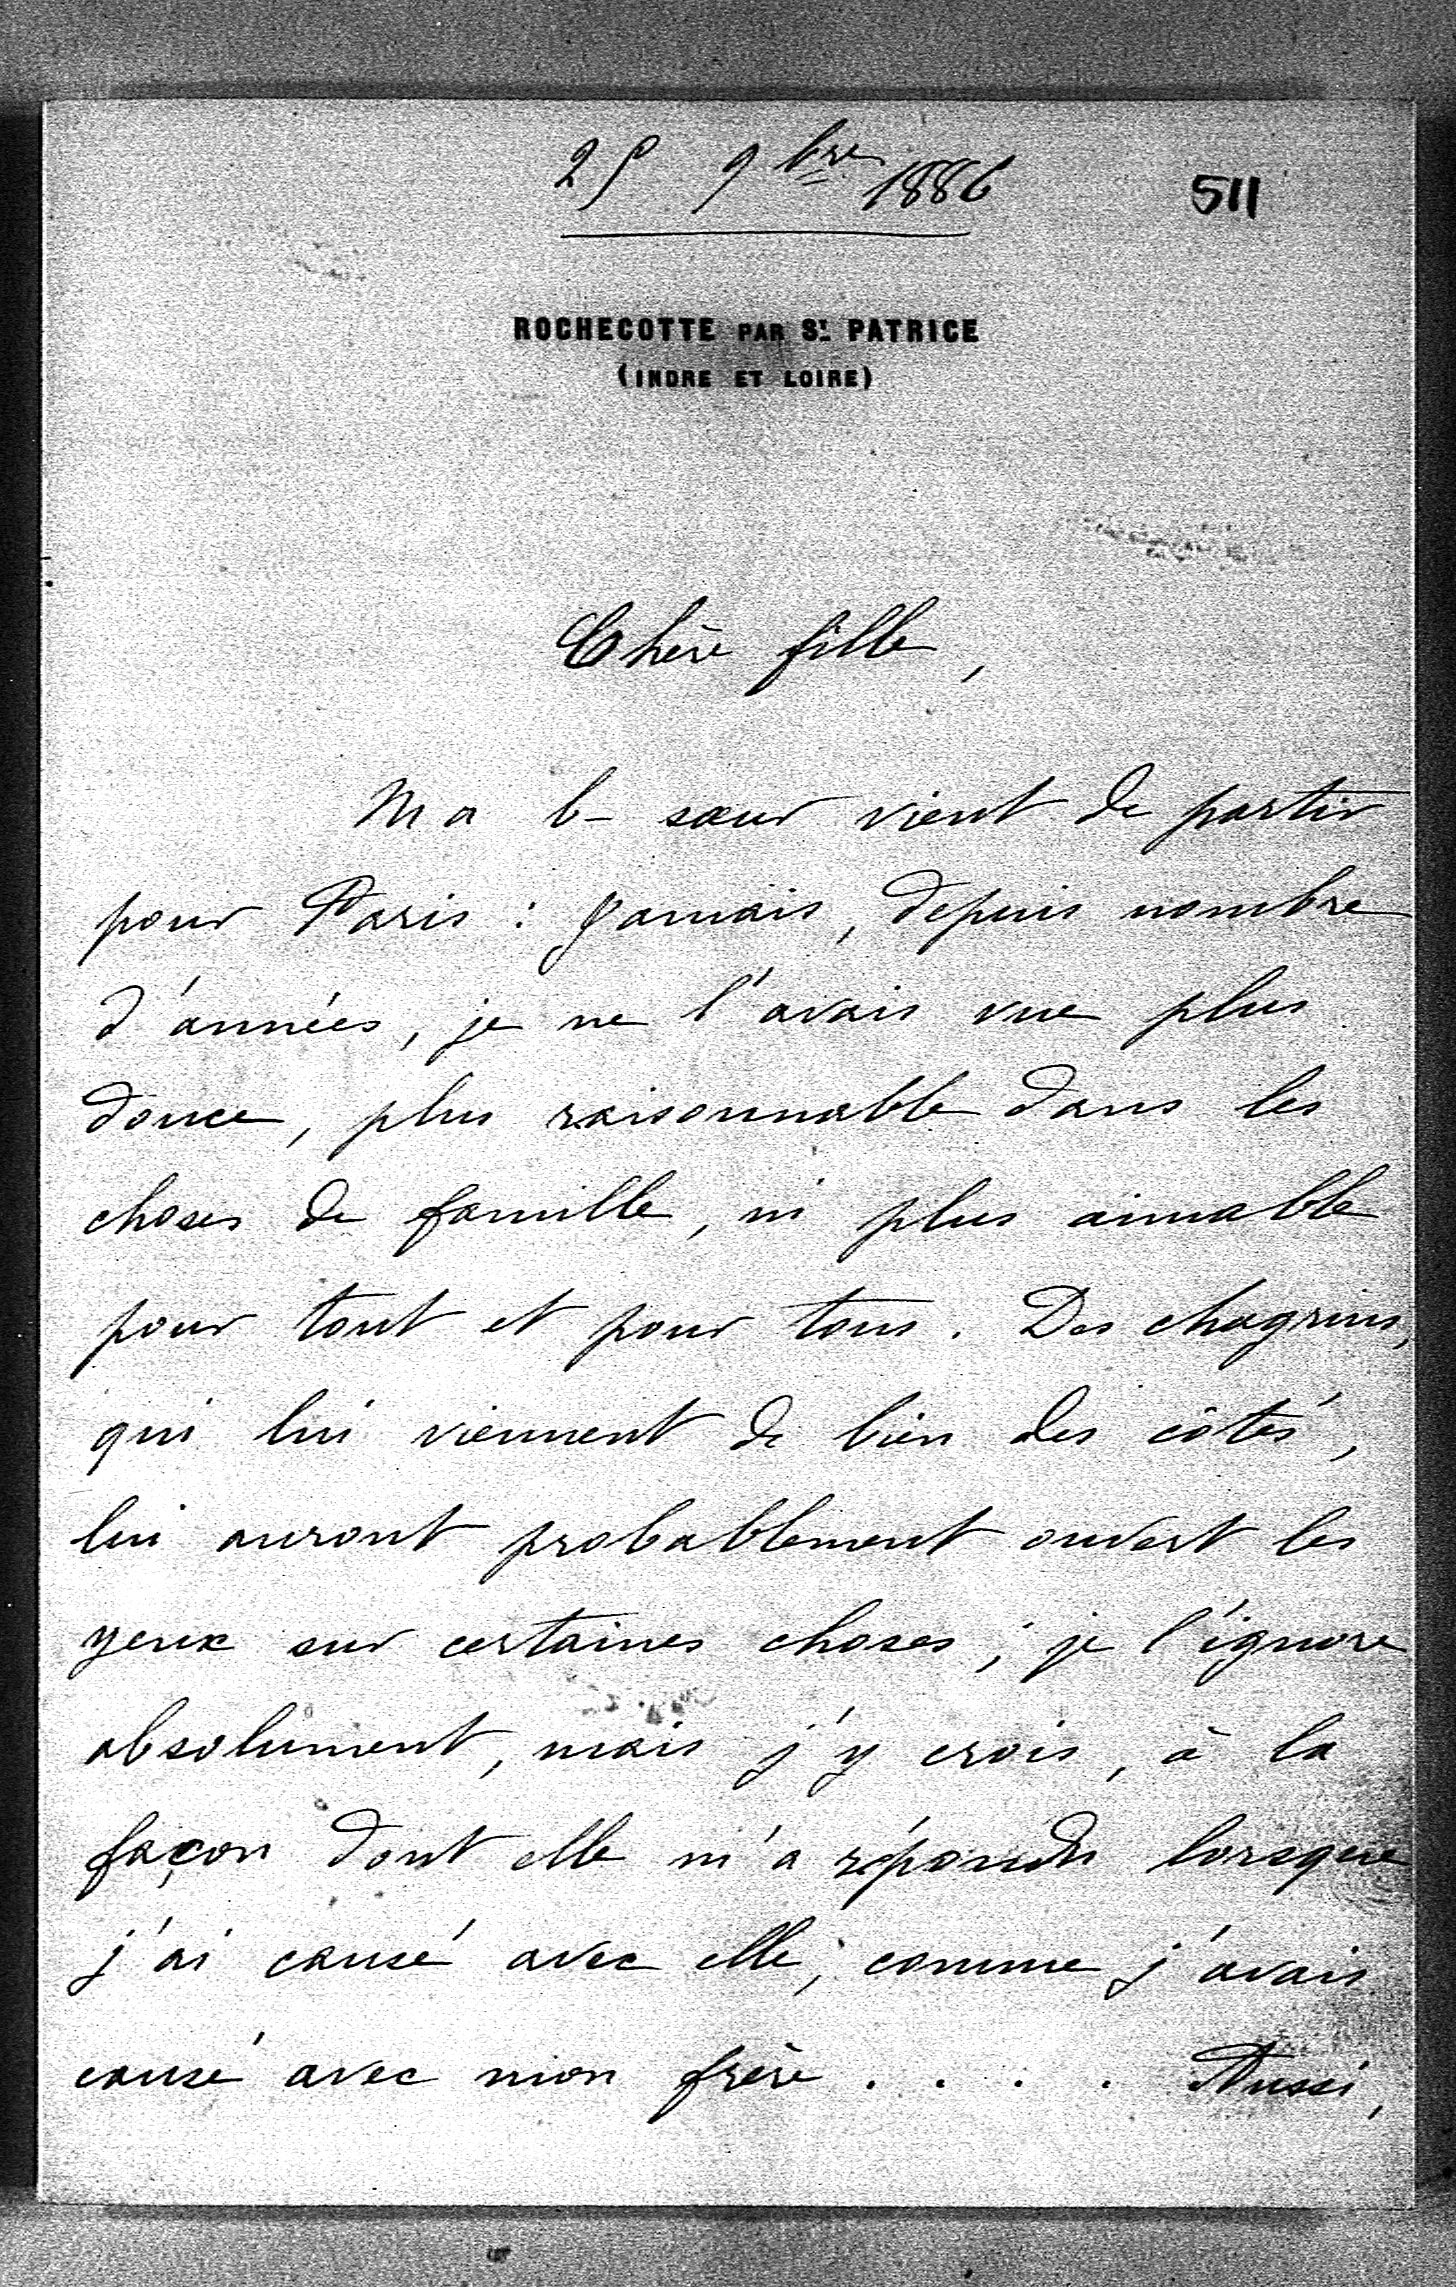 25 9bre 1886
511
ROCHECOTTE PAR St. PATRICE
(INDRE ET LOIRE)
Chère fille,
Ma b- sœur vient de partir
pour Paris : Jamais, depuis nombre
d'années, je ne l'avais vue plus
douce, plus raisonnable dans les
choses de famille, ni plus aimable
pour tout et pour tous. Des chagrins,
qui lui viennent de bien des côtés,
lui auront probablement ouvert les
yeux sur certaines choses ; je l'ignore
absolument, mais j'y crois, à la
façon dont elle m'a répondu lorsque
j'ai causé avec elle, comme j'avais
causé avec mon frère . . . . Aussi,